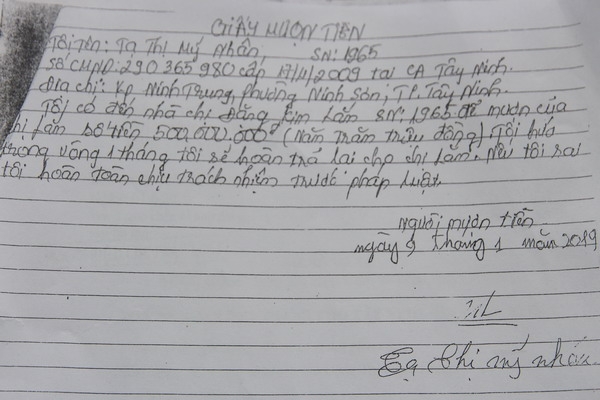 GIẤY MƯỢN TIỀN
Tôi tên: Tạ Thị Mỹ Nhấn, SN: 1965
Số CMND: 290 365 980 cấp 17/11/2009 tại CA Tây Ninh.
Địa chỉ: KP Ninh Trung, Phường Ninh Sơn, TP. Tây Ninh.
Tôi có đến nhà chị Đặng Kim Lắn SN: 1965 để mượn của
chị Lắn số tiền 500.000.000đ (Năm trăm triệu đồng) Tôi hứa
trong vòng 1 tháng tôi sẽ hoàn trả lại cho chị Lắn. Nếu tôi sai
tôi hoàn toàn chịu trách nhiệm trước pháp luật.
Người mượn tiền
ngày 9 tháng 1 năm 2019
Tạ Thị Mỹ Nhấn